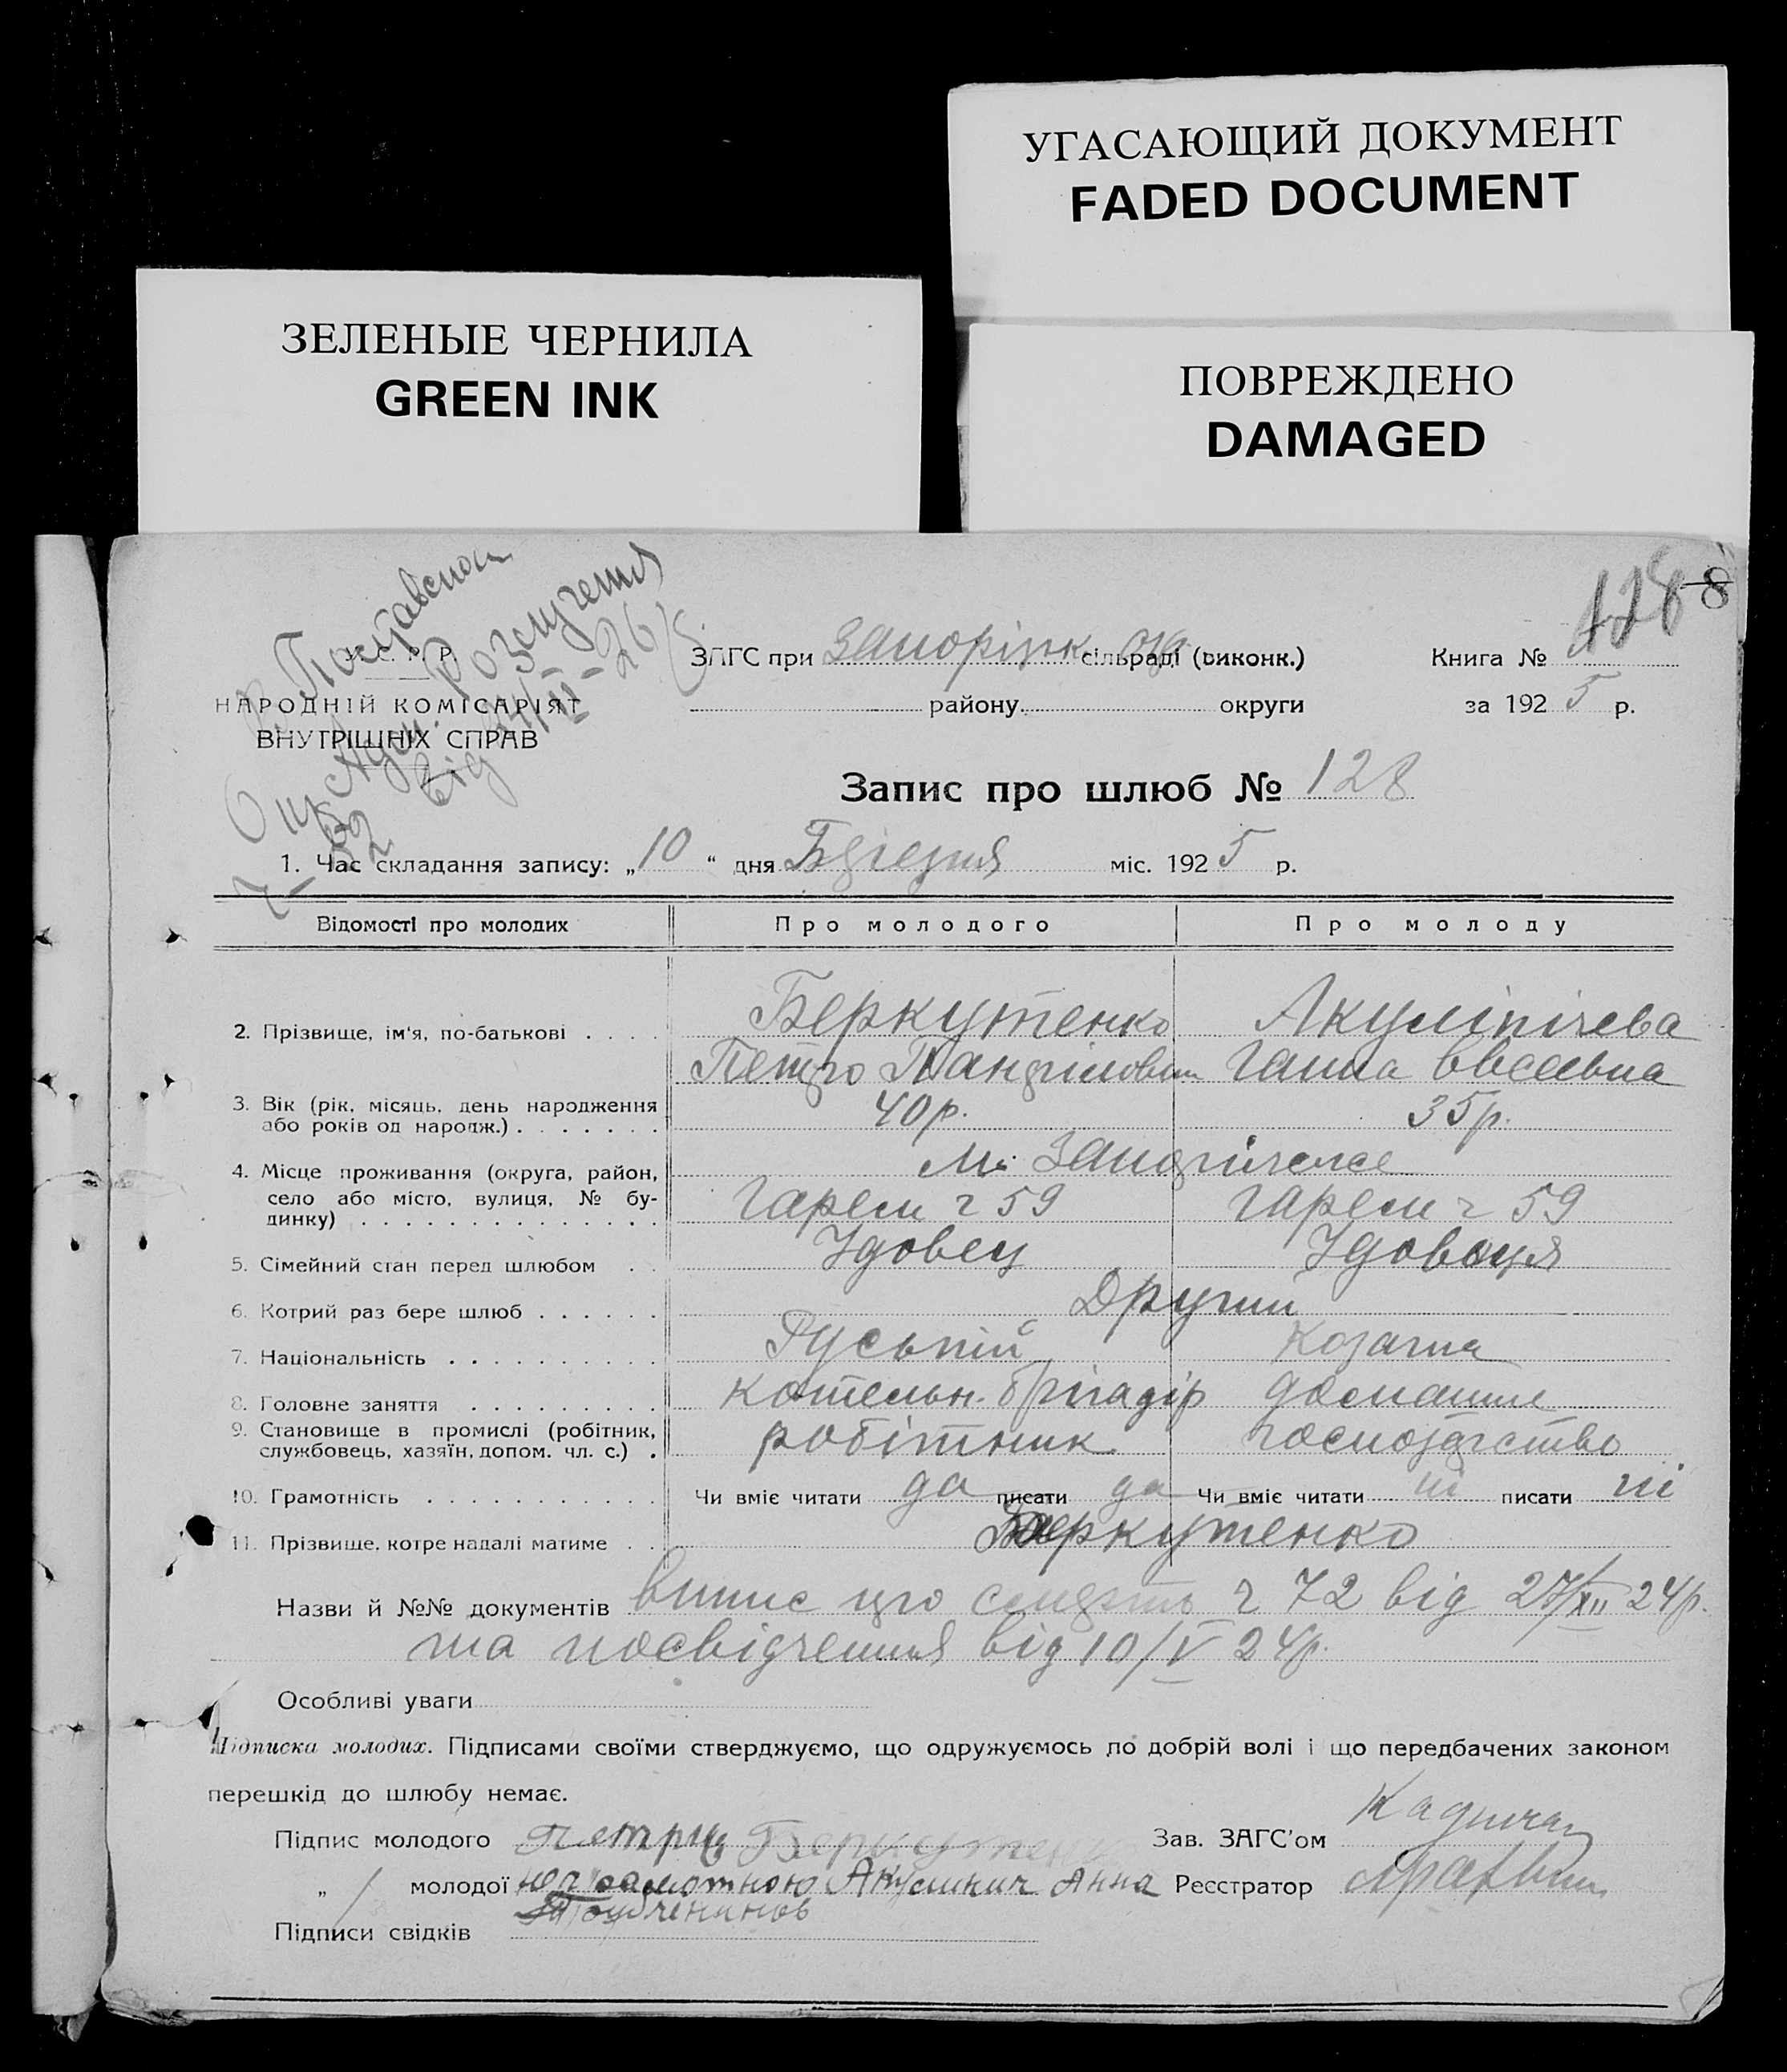 УГАСАЮЩИЙ ДОКУМЕНТ
FADED DOCUMENT
ЗЕЛЕНЫЕ ЧЕРНИЛА
GREEN INK
ПОВРЕЖДЕНО
DAMAGED
128 8
Розлучения
від
У. С. Р. Р.
НАРОДНІЙ КОМІСАРІЯТ
ВНУТРІШНІХ СПРАВ
ЗАГС при Запорізьк сільраді (виконк.) Книга №
району округи за 1925 р.
Запис про шлюб № 128
1. Час складання запису: „10“ дня Березня міс. 1925 р.
Відомості про молодих Про молодого Про молоду
2. Прізвище, ім'я, по-батькові Беркутенко
Петро Ганна Овсеевна
3. Вік (рік, місяць, день народження 40р. 35р.
або років од народж.)
4. Місце проживання (округа, район, м. Запоріжже
село або місто, вулиця, № бу- ч 59 ч 59
динку)
5. Сімейний стан перед шлюбом Удовец Удовиця
6. Котрий раз бере шлюб Другий
7. Національність Руський Козачка
8. Головне заняття котельн. брігадір домашне
9. Становище в промислі (робітник, робітник господарство
службовець, хазяїн, допом. чл. с.)
10. Грамотність Чи вміє читати да писати да Чи вміє читати ні писати ні
11. Прізвище, котре надалі матиме Беркутенко
Назви й №№ документів випис про смерть ч 72 від 27/XII 24р.
та посвідчення від 10/V 24р.
Особливі уваги
Підписка молодих. Підписами своїми стверджуємо, що одружуємось по добрій волі і що передбачених законом
перешкід до шлюбу немає.
Підпис молодого Беркутенко Зав. ЗАГС'ом
„ молодої неграмотною Анна Реєстратор
Підписи свідків